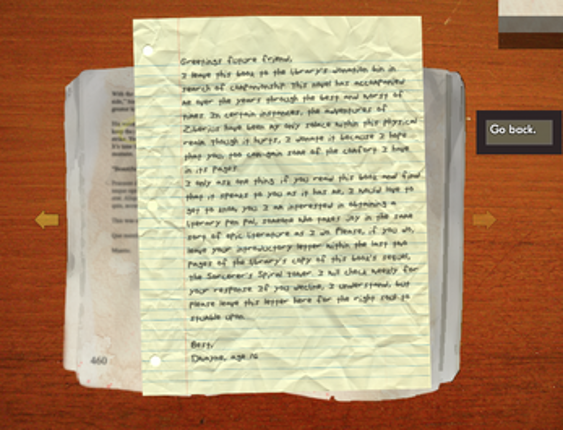 Greetings future friend,
I leave this book to the library's donation bin in
search of companionship. This novel has accompanied
me over the years through the best and worst of
times. In certain instances, the adventures of
Ziberius have been my only solace within this physical
realm. Though it hurts, I donate it because I hope
that you, too, can gain some of the comfort I have
in its pages.
I only ask one thing, if you read this book and find
that it speaks to you as it has me, I would love to
get to know you. I am interested in obtaining a
literary pen pal, someone who takes joy in the same
sort of epic literature as I do. Please, if you do,
leave your introductory letter within the last two
pages of the library's copy of this book's sequel,
the Sorcerer's Spiral Tower. I will check weekly for
your response. If you decline, I understand, but
please leave this letter here for the right soul to
stumble upon.
Best,
Dwayne, age 16
460
Go back.